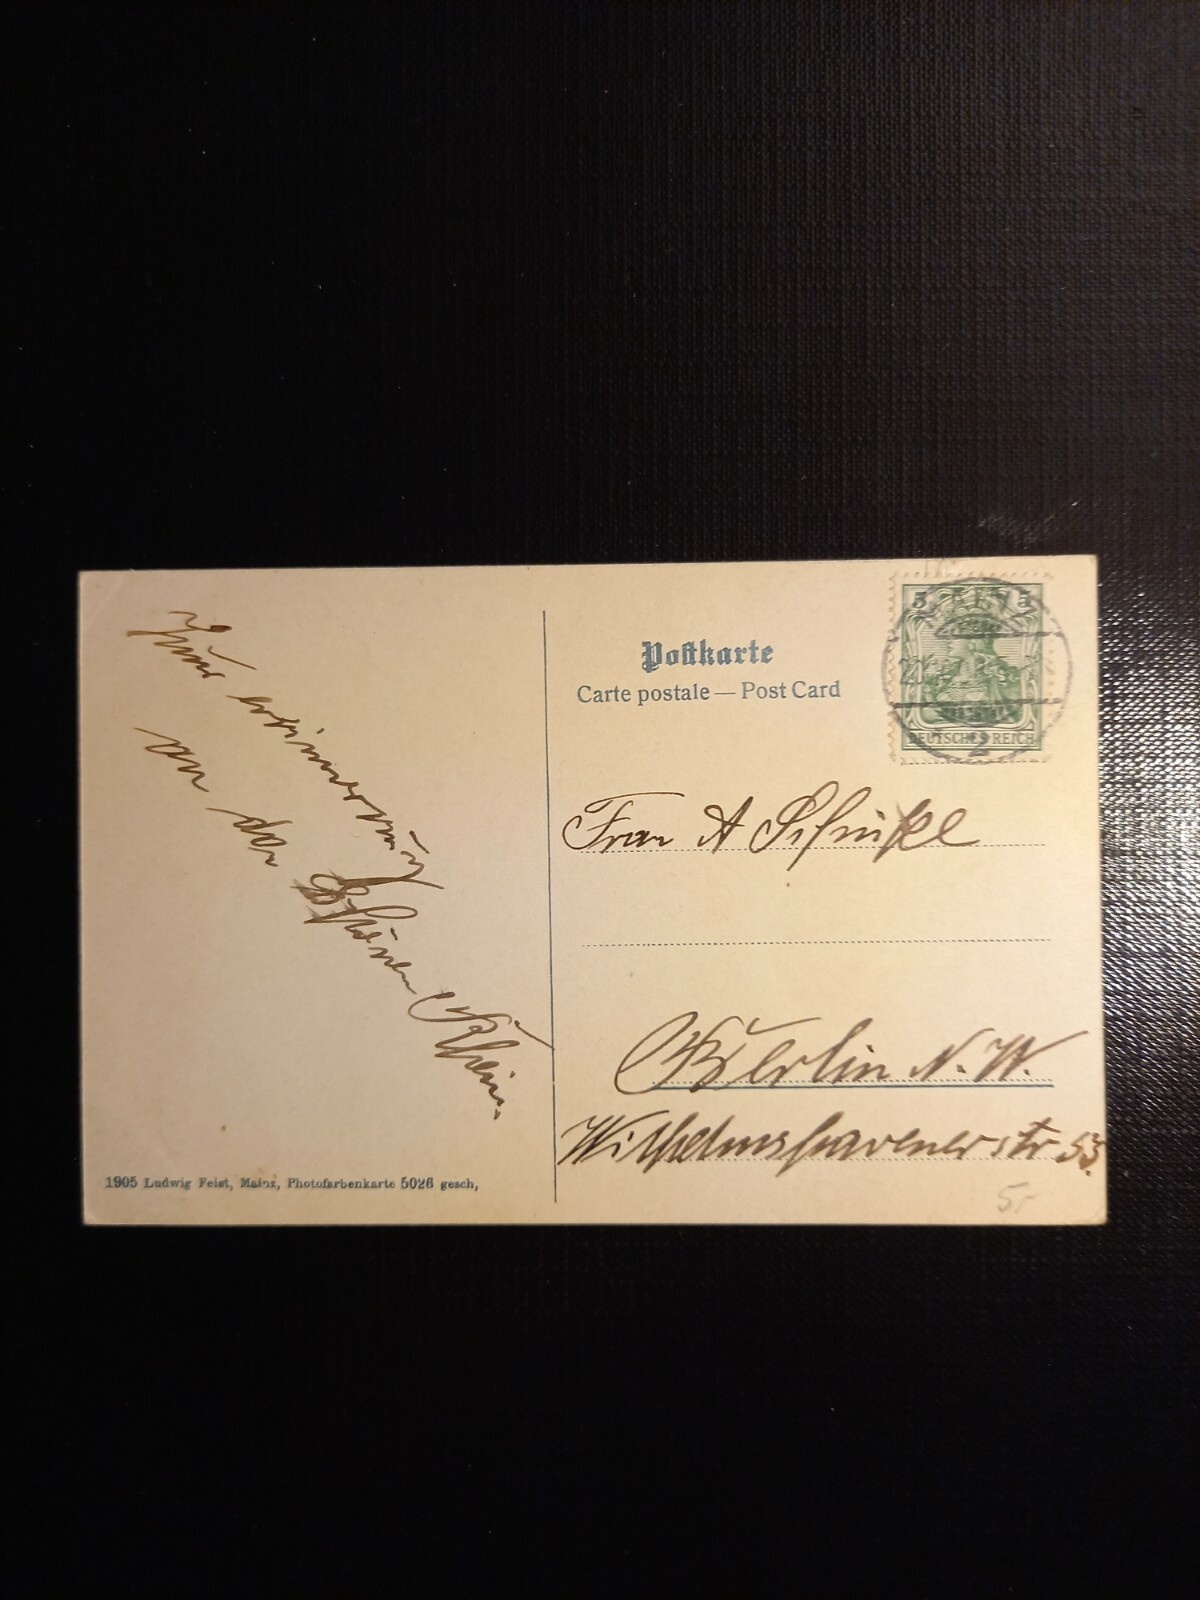 Zur Erinnerung
an den
schönen Rhein.
1905 Ludwig Feist, Mainz, Photofarbenkarte 5026 gesch,
Postkarte
Carte postale — Post Card
5 5
DEUTSCHES REICH
2
Frau A
Berlin N.W.
Wilhelmshavenerstr 53.
5.-